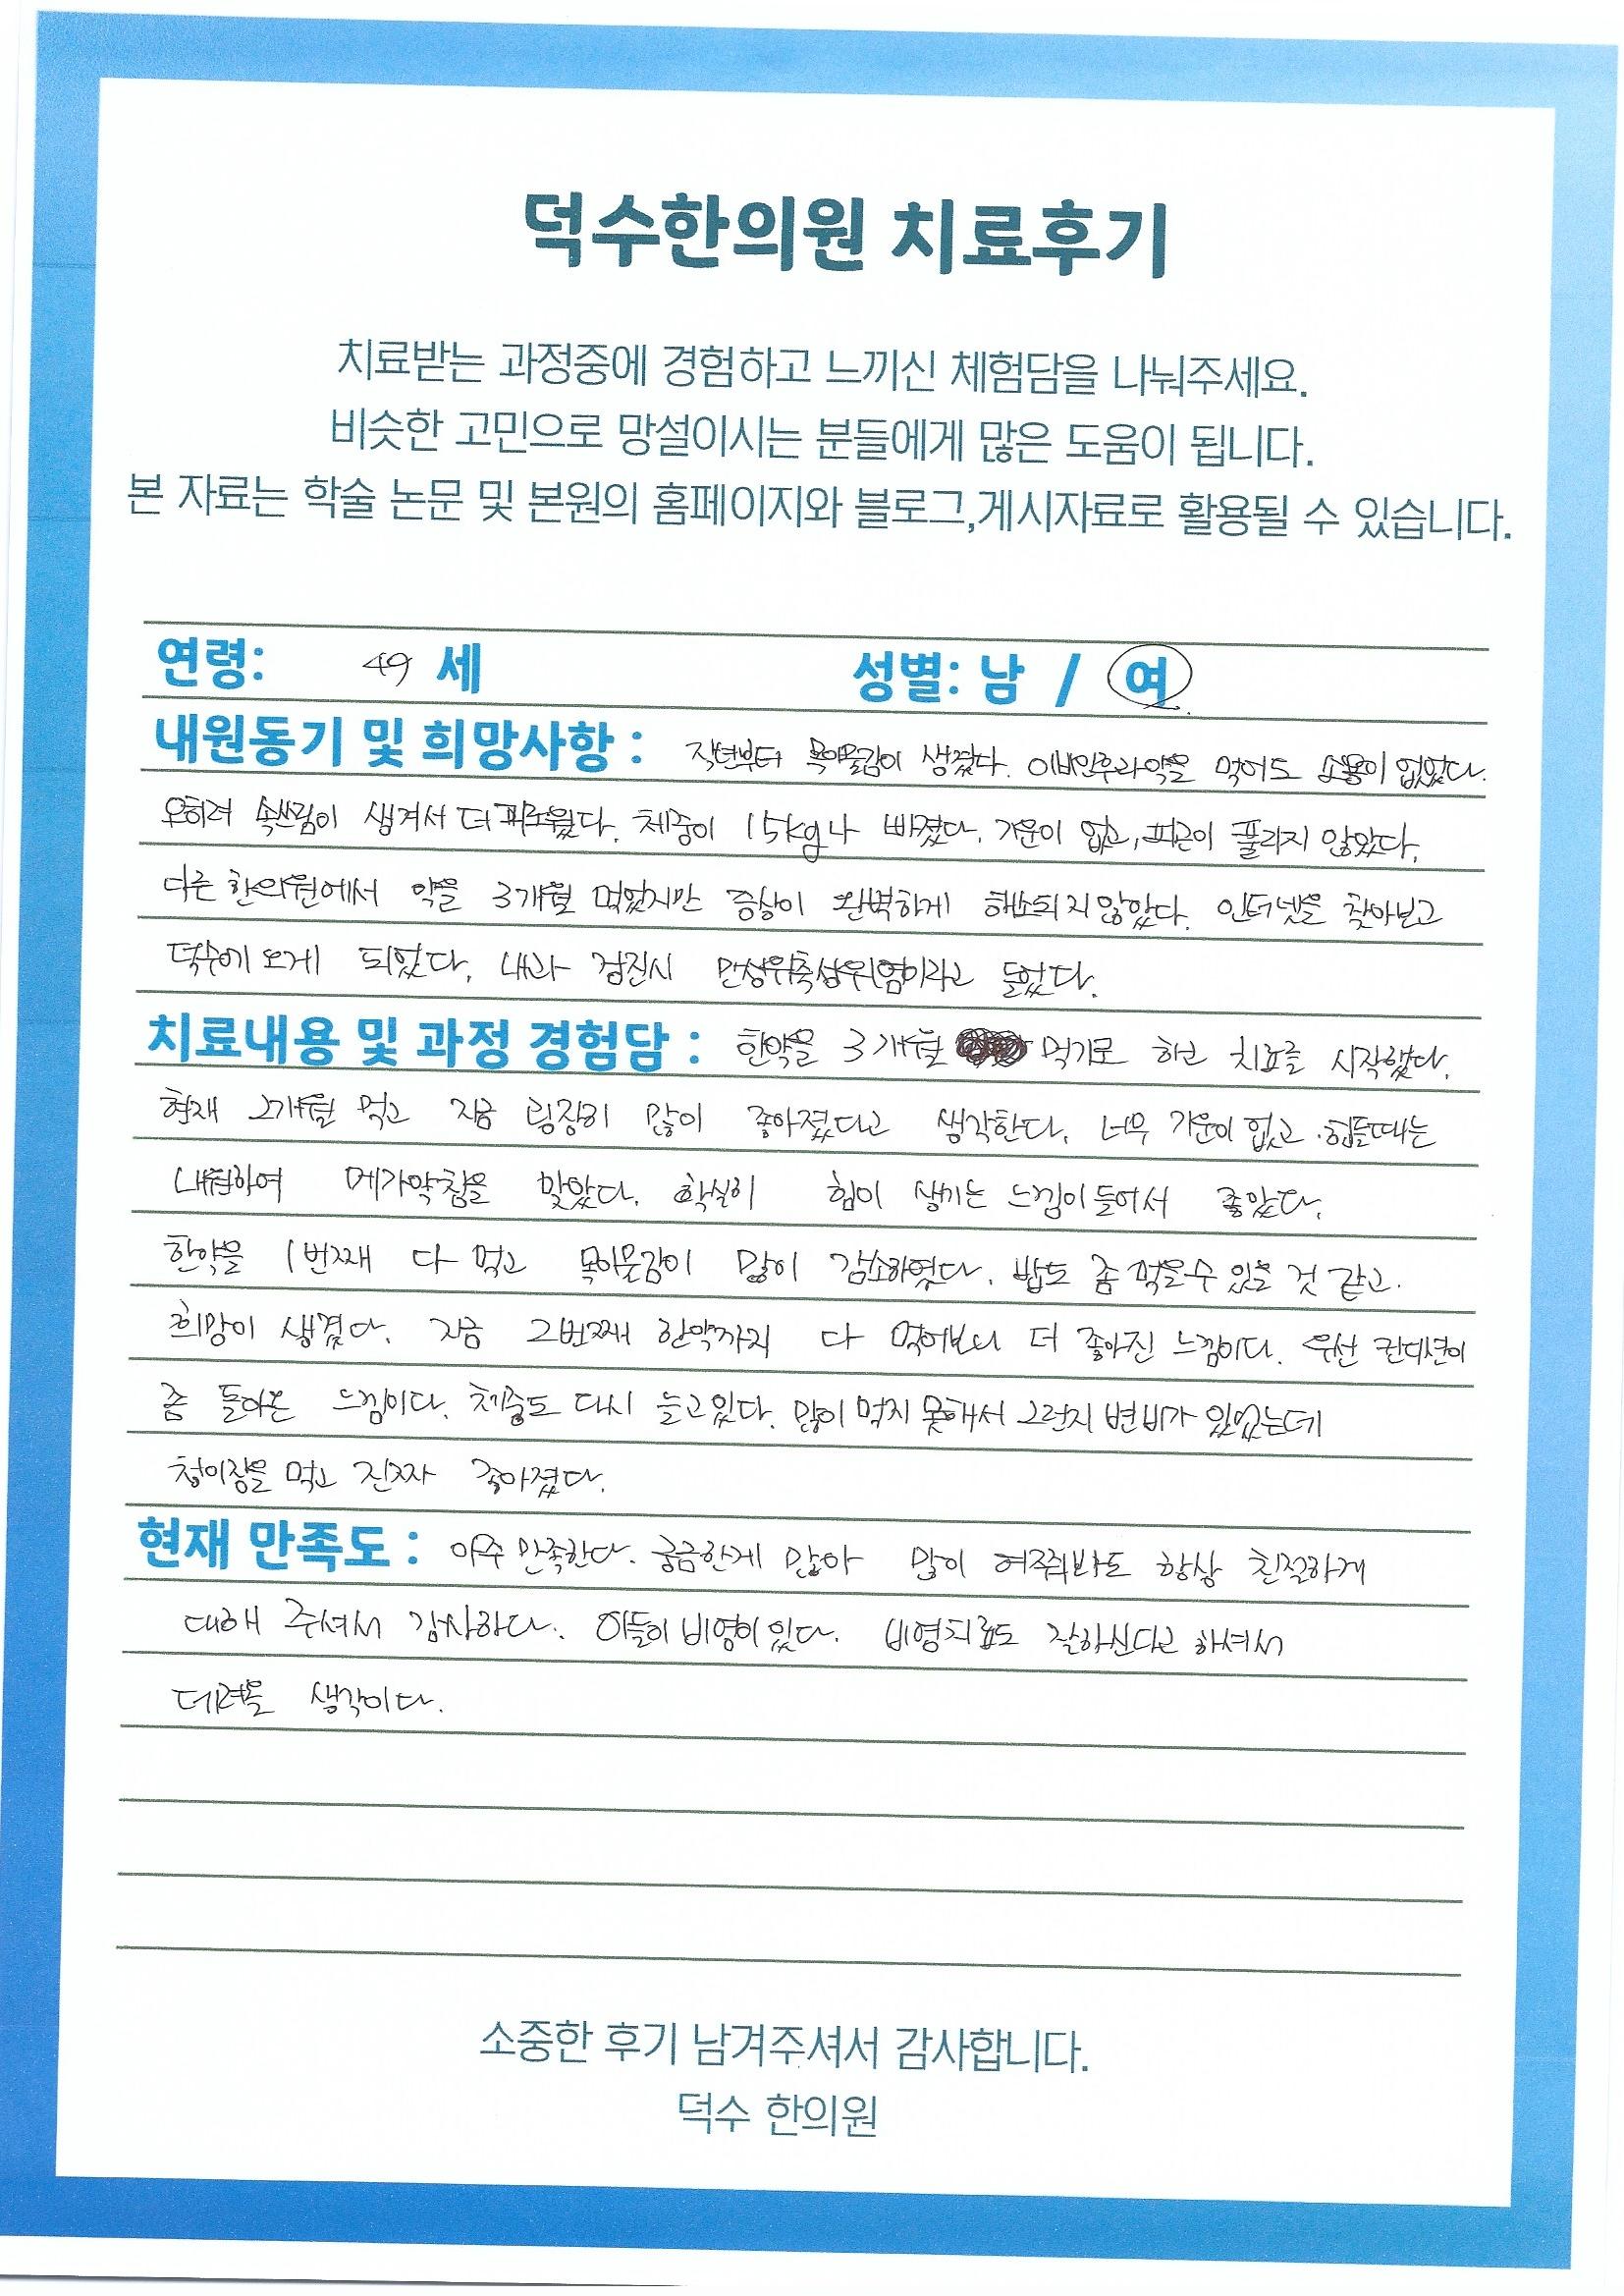 덕수한의원 치료후기
치료받는 과정중에 경험하고 느끼신 체험담을 나눠주세요.
비슷한 고민으로 망설이시는 분들에게 많은 도움이 됩니다.
본 자료는 학술 논문 및 본원의 홈페이지와 블로그,게시자료로 활용될 수 있습니다.
연령: 49 세 성별: 남 / 여
내원동기 및 희망사항 : 작년부터 목이물감이 생겼다. 이비인후과약을 먹어도 소용이 없었다.
오히려 속쓰림이 생겨서 더 괴로웠다. 체중이 15kg나 빠졌다. 기운이 없고, 피곤이 풀리지 않았다.
다른 한의원에서 약을 3개월 먹었지만 증상이 완벽하게 해소되지 않았다. 인터넷을 찾아보고
덕수에 오게 되었다. 내과 검진시 만성위축성위염이라고 들었다.
치료내용 및 과정 경험담 : 한약을 3개월 먹기로 하고 치료를 시작했다.
현재 2개월 먹고 지금 굉장히 많이 좋아졌다고 생각한다. 너무 기운이 없고 힘들때는
내원하여 메가약침을 맞았다. 확실히 힘이 생기는 느낌이 들어서 좋았다.
한약을 1번째 다 먹고 목이물감이 많이 감소하였다. 밥도 좀 먹을수 있을 것 같고.
희망이 생겼다. 지금 2번째 한약까지 다 먹어보니 더 좋아진 느낌이다. 우선 컨디션이
좀 돌아온 느낌이다. 체중도 다시 늘고있다. 많이 먹지 못해서 그런지 변비가 있었는데
청이장을 먹고 진짜 좋아졌다.
현재 만족도 : 아주 만족한다. 궁금한게 많아 많이 여쭤봐도 항상 친절하게
대해 주셔서 감사하다. 아들이 비염이 있다. 비염치료도 잘하신다고 하셔서
데려올 생각이다.
소중한 후기 남겨주셔서 감사합니다.
덕수 한의원